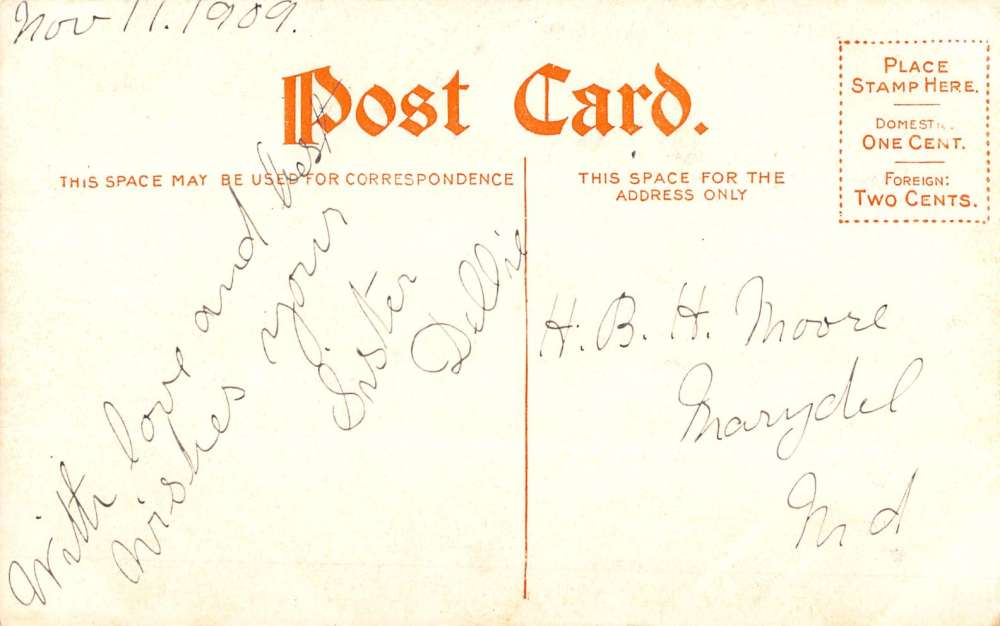 Nov 11. 1909.
Post Card.
PLACE
STAMP HERE.
DOMESTIC.
ONE CENT.
FOREIGN:
TWO CENTS.
THIS SPACE MAY BE USED FOR CORRESPONDENCE
THIS SPACE FOR THE
ADDRESS ONLY
With love and best
wishes your
Sister
Dellie
H. B. H. Moore
Marydel
Md